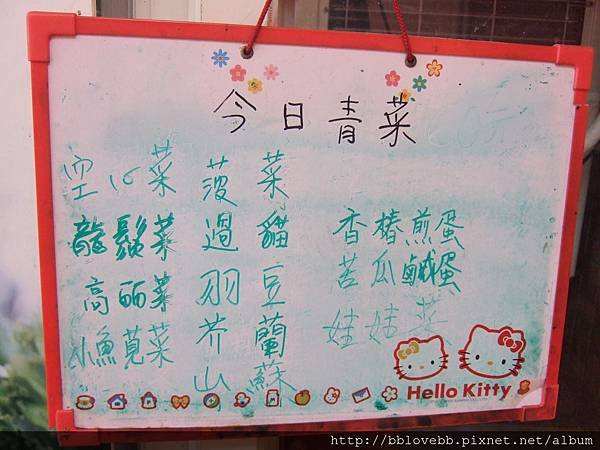 今日青菜
空心菜 菠菜
龍鬚菜 過貓 香椿煎蛋
高丽菜 羽豆 苦瓜鹹蛋
小魚莧菜 芥蘭 娃娃菜
山蘇
Hello Kitty
http://bblovebb.pixnet.net/album